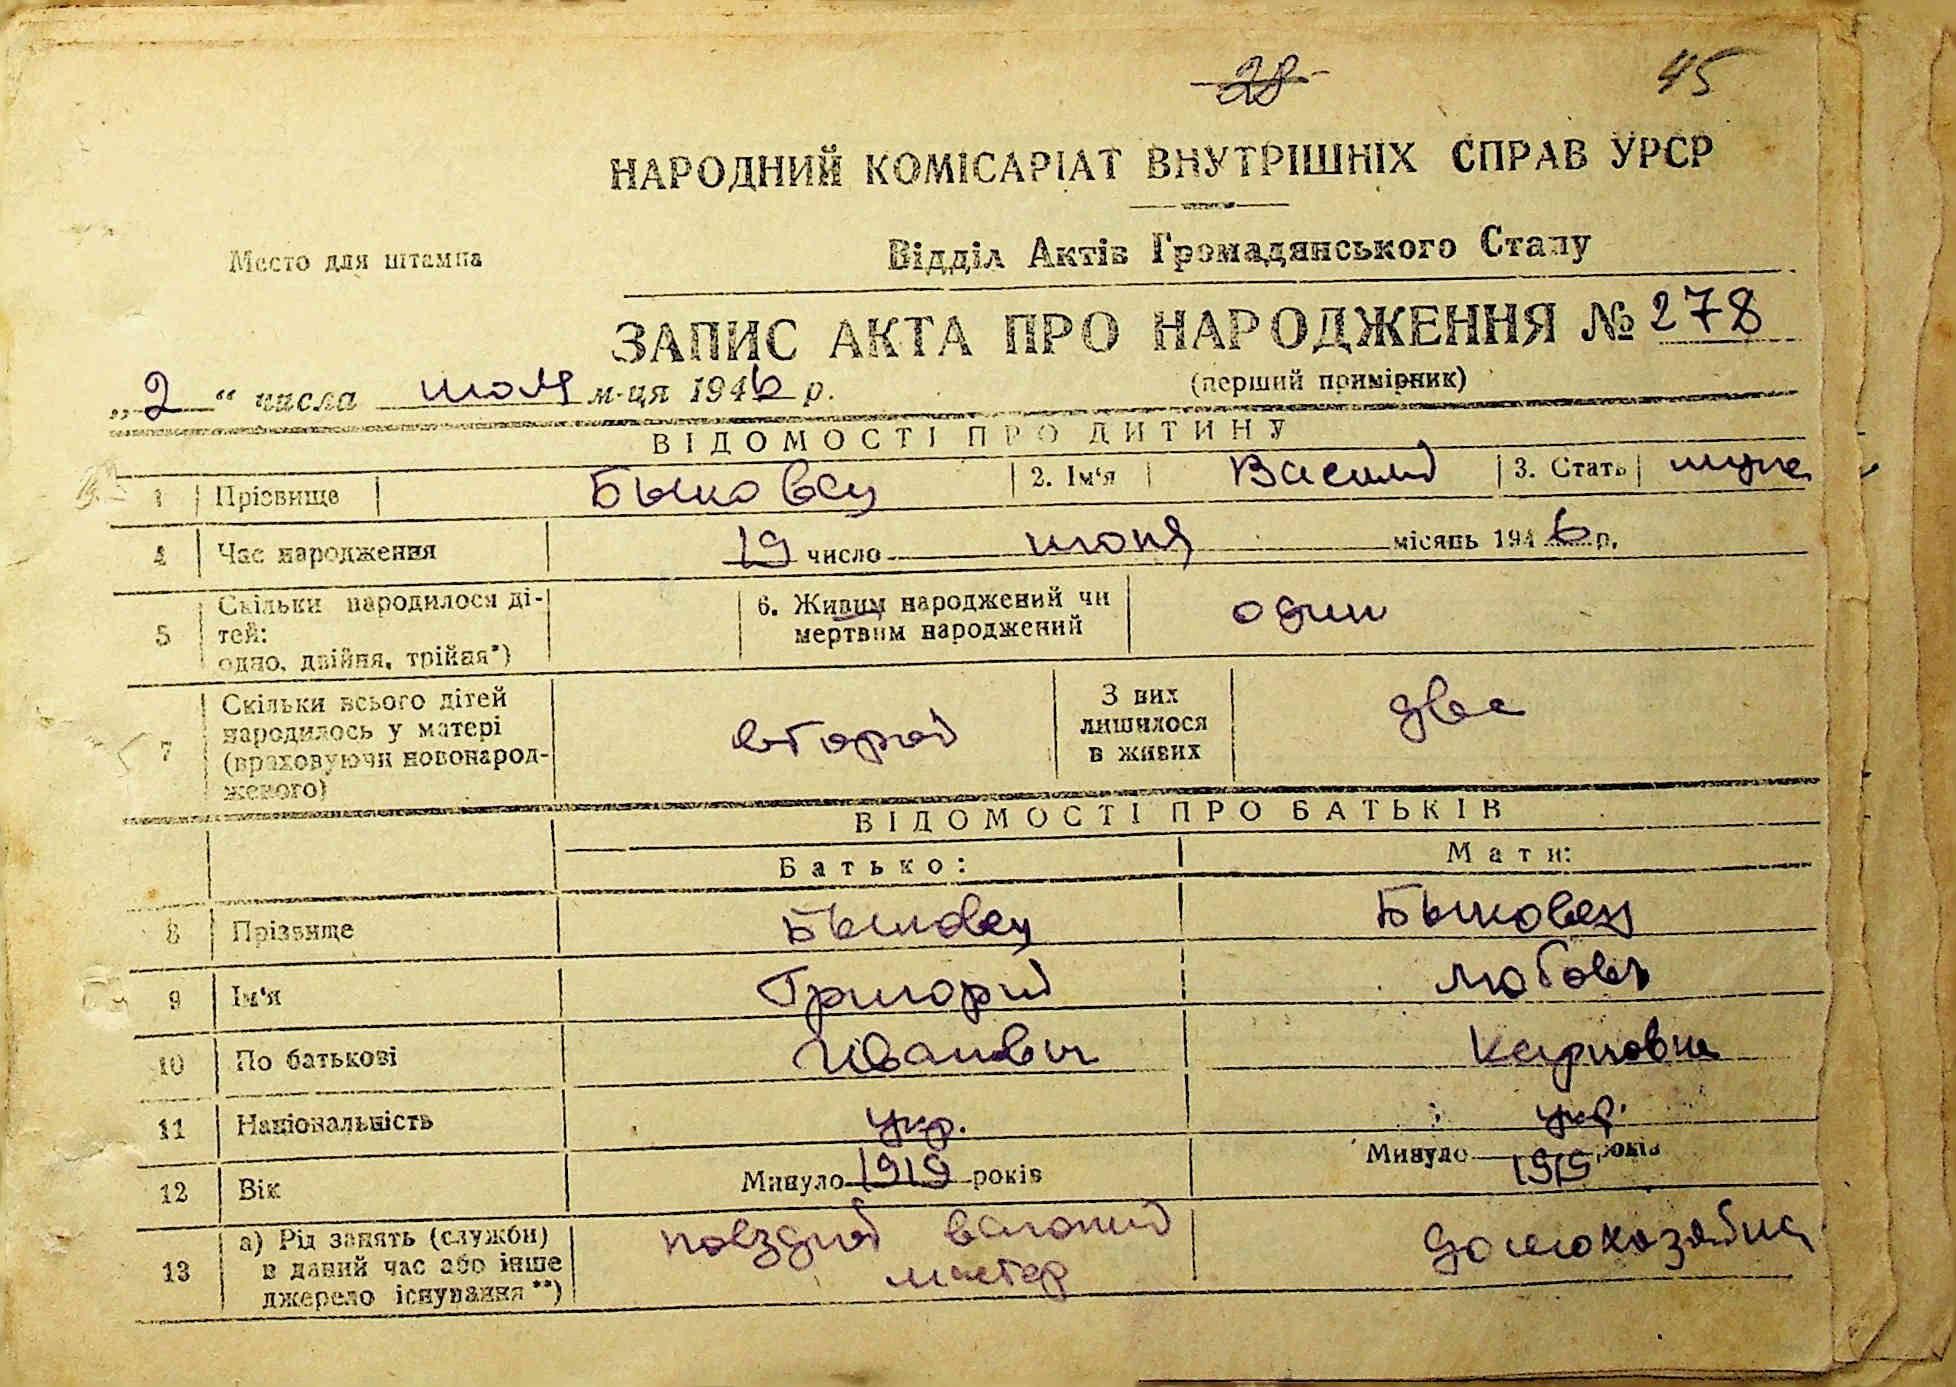 28 45
НАРОДНИЙ КОМІСАРІАТ ВНУТРІШНІХ СПРАВ УРСР
Место для штампа
Відділ Актів Громадянського Стану
ЗАПИС АКТА ПРО НАРОДЖЕННЯ № 278
„2“ числа июля м-ця 1946 р. (перший примірник)
ВІДОМОСТІ ПРО ДИТИНУ
1 Прізвище Быковец 2. Ім‘я Василий 3. Стать
4 Час народження 19 число июня місяць 1946 р.
5 Скільки народилося ді-
тей:
одно, двійня, трійня*)
6. Живим народжений чи
мертвим народжений
один
7 Скільки всього дітей
народилось у матері
(враховуючи новонарод-
женого)
второй
З них
лишилося
в живих
два
ВІДОМОСТІ ПРО БАТЬКІВ
Батько: Мати:
8 Прізвище Быковец Быковец
9 Ім‘я Григорий Любовь
10 По батькові Иванович Карповна
11 Національність укр. укр.
12 Вік Минуло 1919 років Минуло 1919 років
13 а) Рід занять (служби)
в даний час або інше
джерело існування**)
поездной вагонный
мастер
домохозяйка